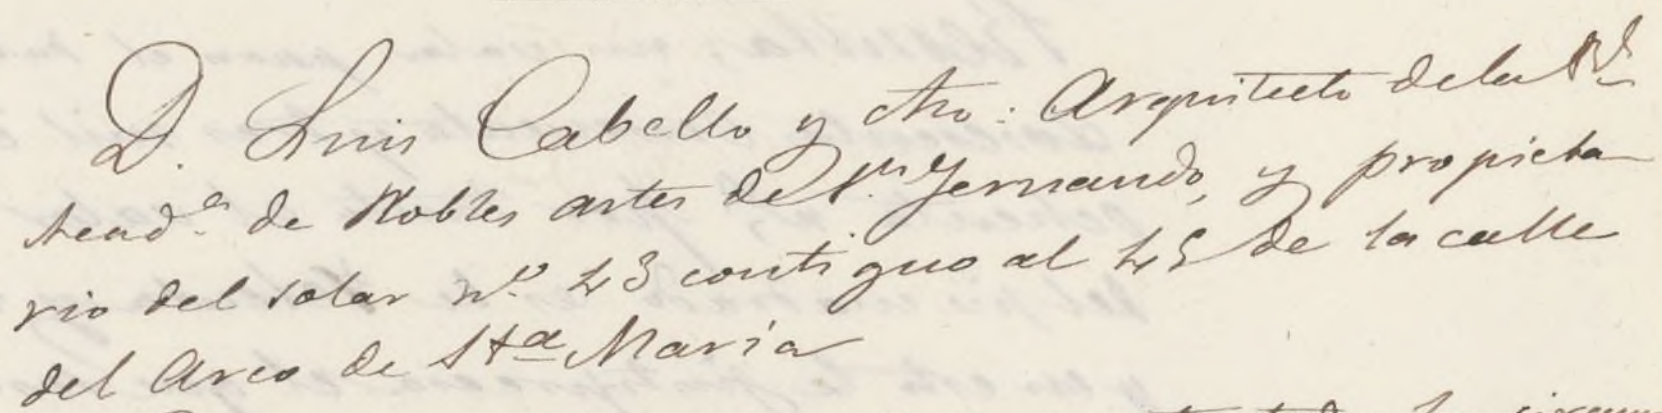 D. Luis Cabello y Aso: Arquitecto de la Rl.
Acad.a de Nobles artes de Sn. Fernando, y propieta
rio del solar no. 43 contiguo al 45 de la calle
del Arco de Sta Maria